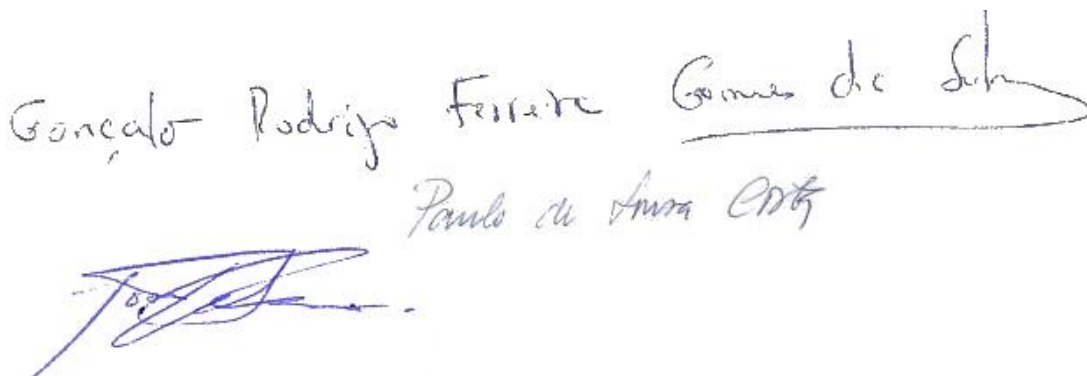 Gonçalo Rodrigo Ferreira Gomes da Silva
Paulo de Sousa Costa